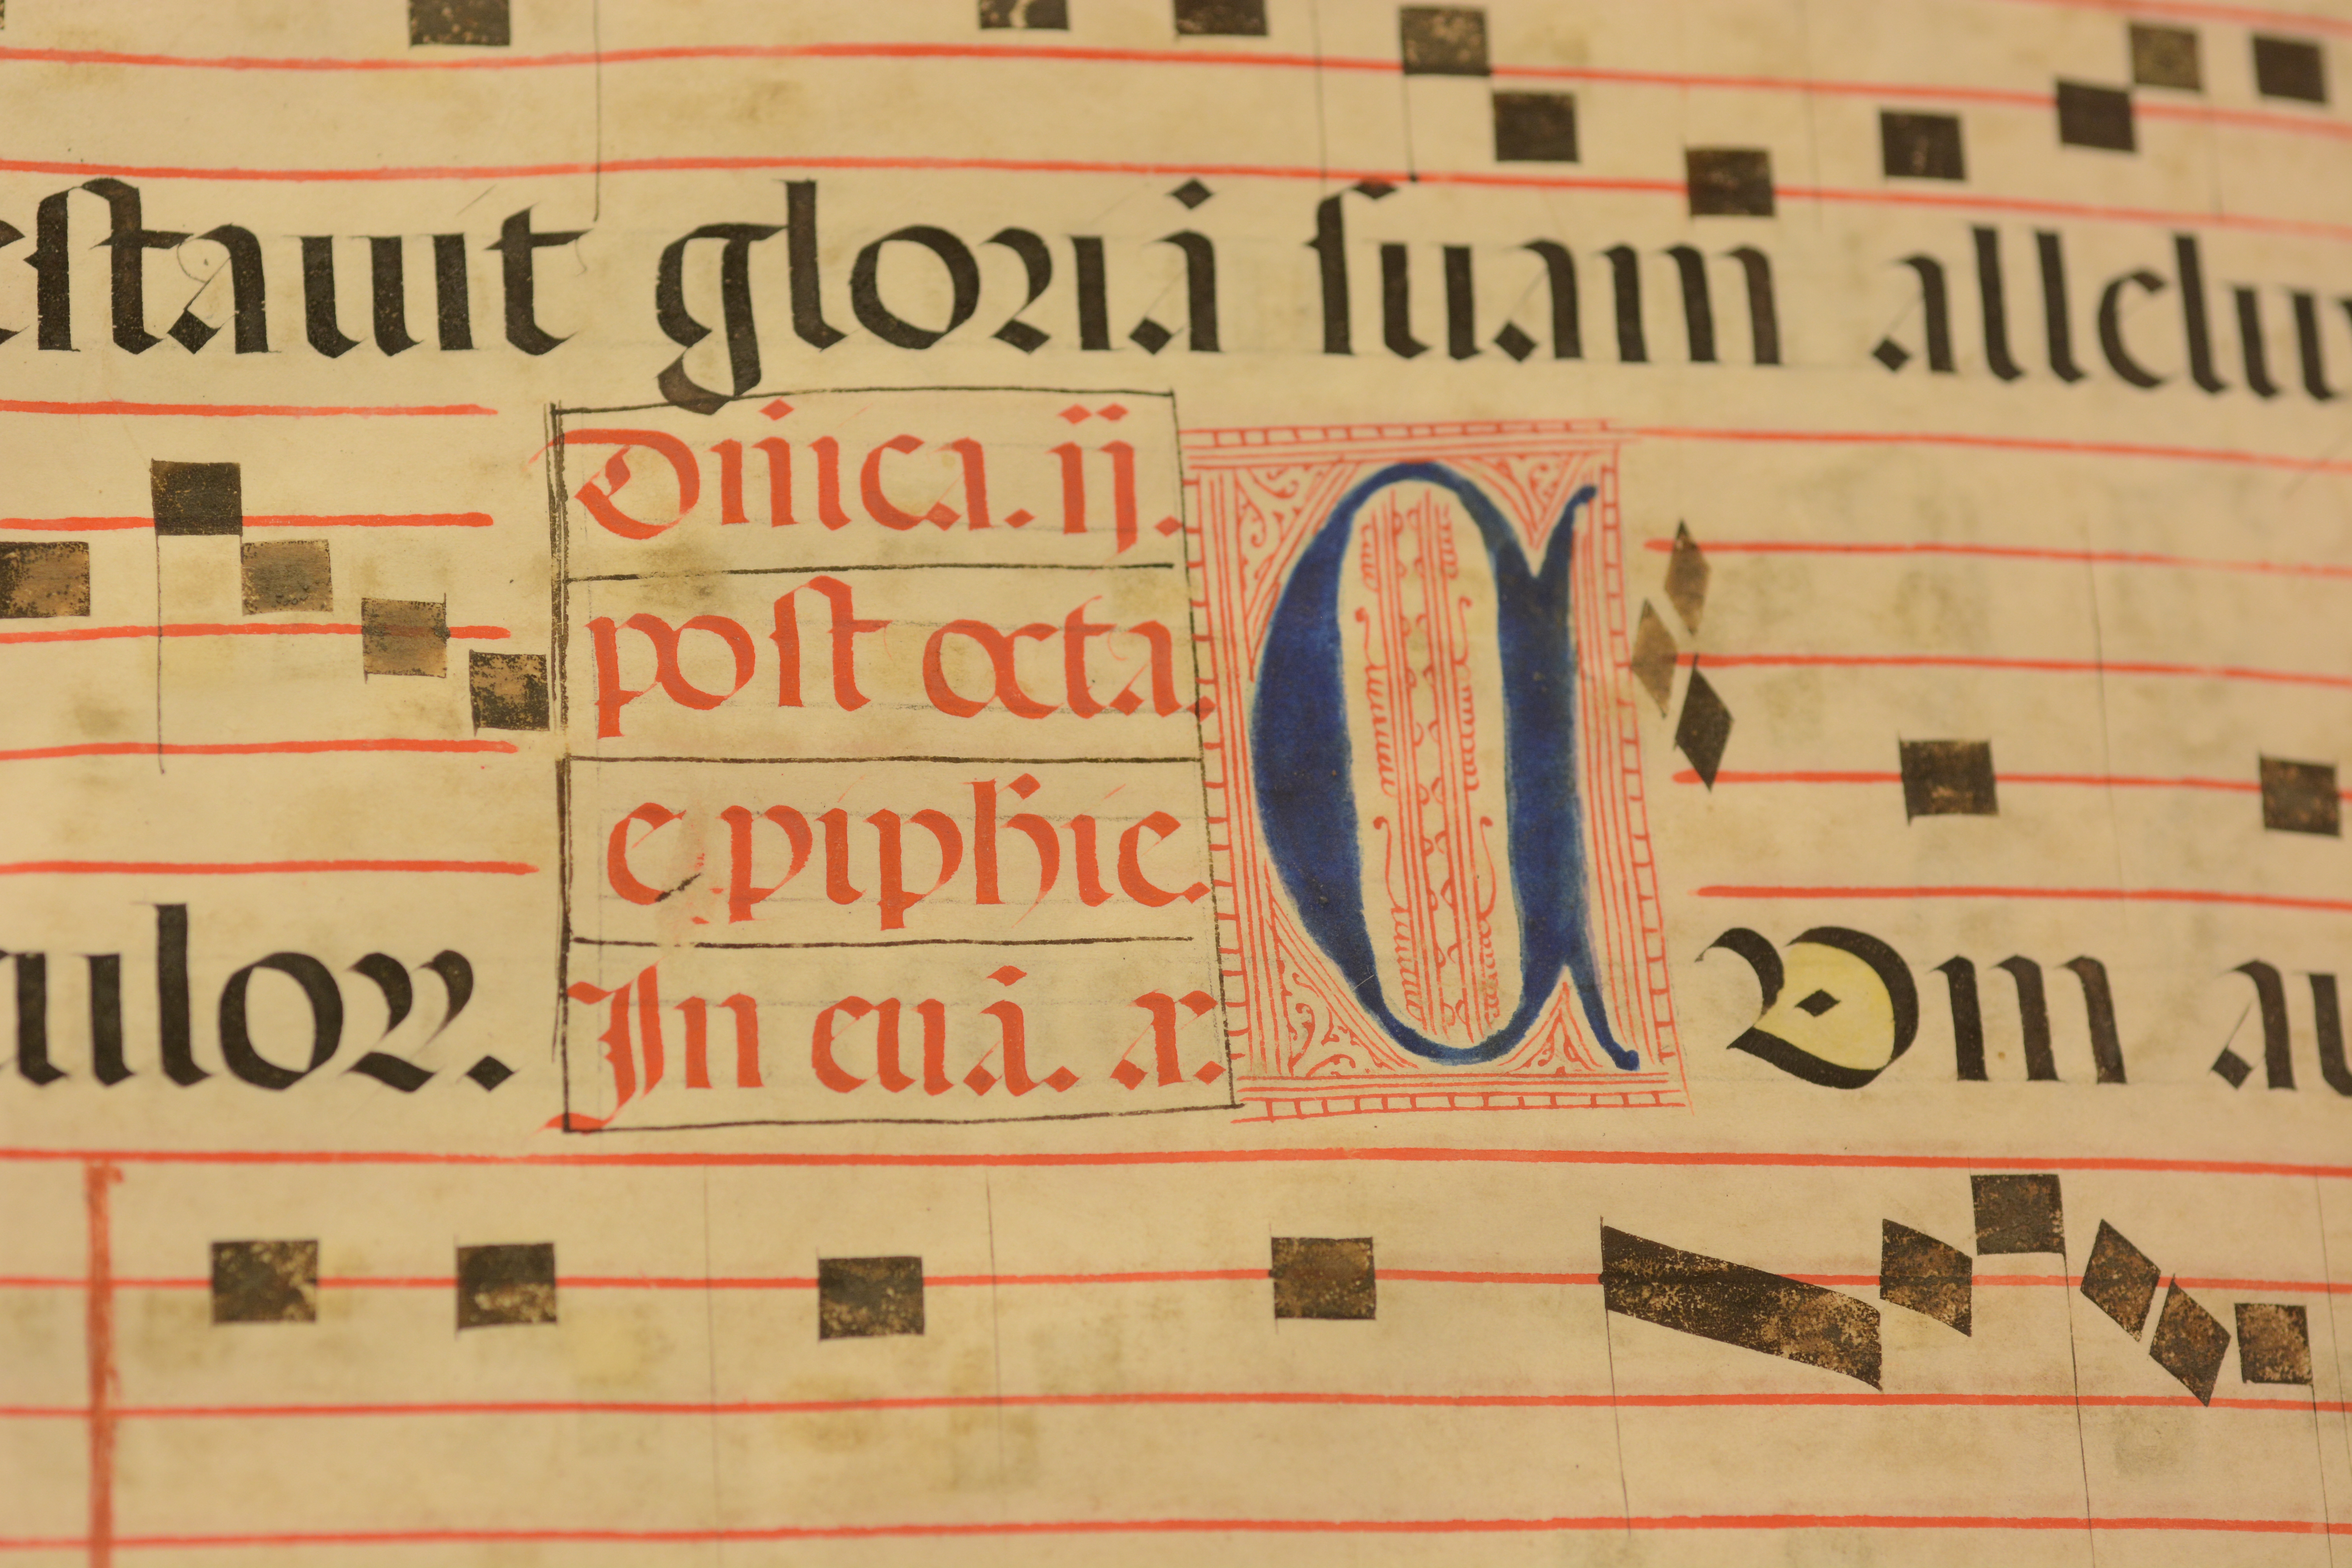 estauit gloriã suam alleluy
Dñica. ij.
post octa.
epiphie.
In euã. a.
uloꝝ.
A Dm au